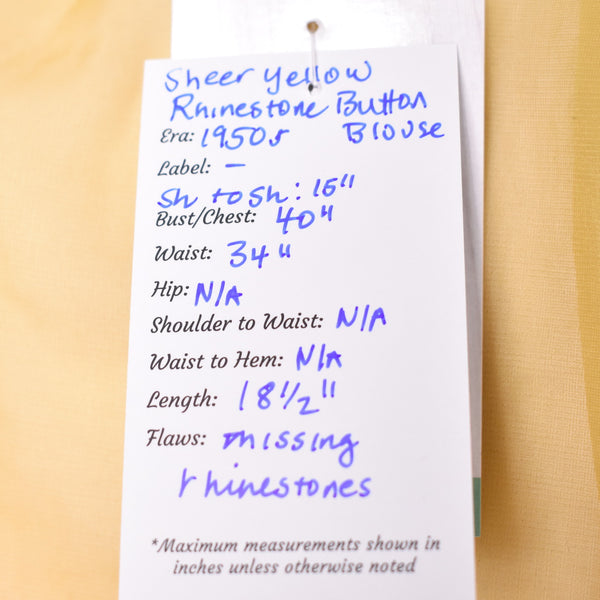 Sheer Yellow
Rhinestone Button
Era: 1950s Blouse
Label: –
Sh to Sh: 15"
Bust/Chest: 40"
Waist: 34"
Hip: N/A
Shoulder to Waist: N/A
Waist to Hem: N/A
Length: 18 1/2"
Flaws: missing
rhinestones
*Maximum measurements shown in
inches unless otherwise noted